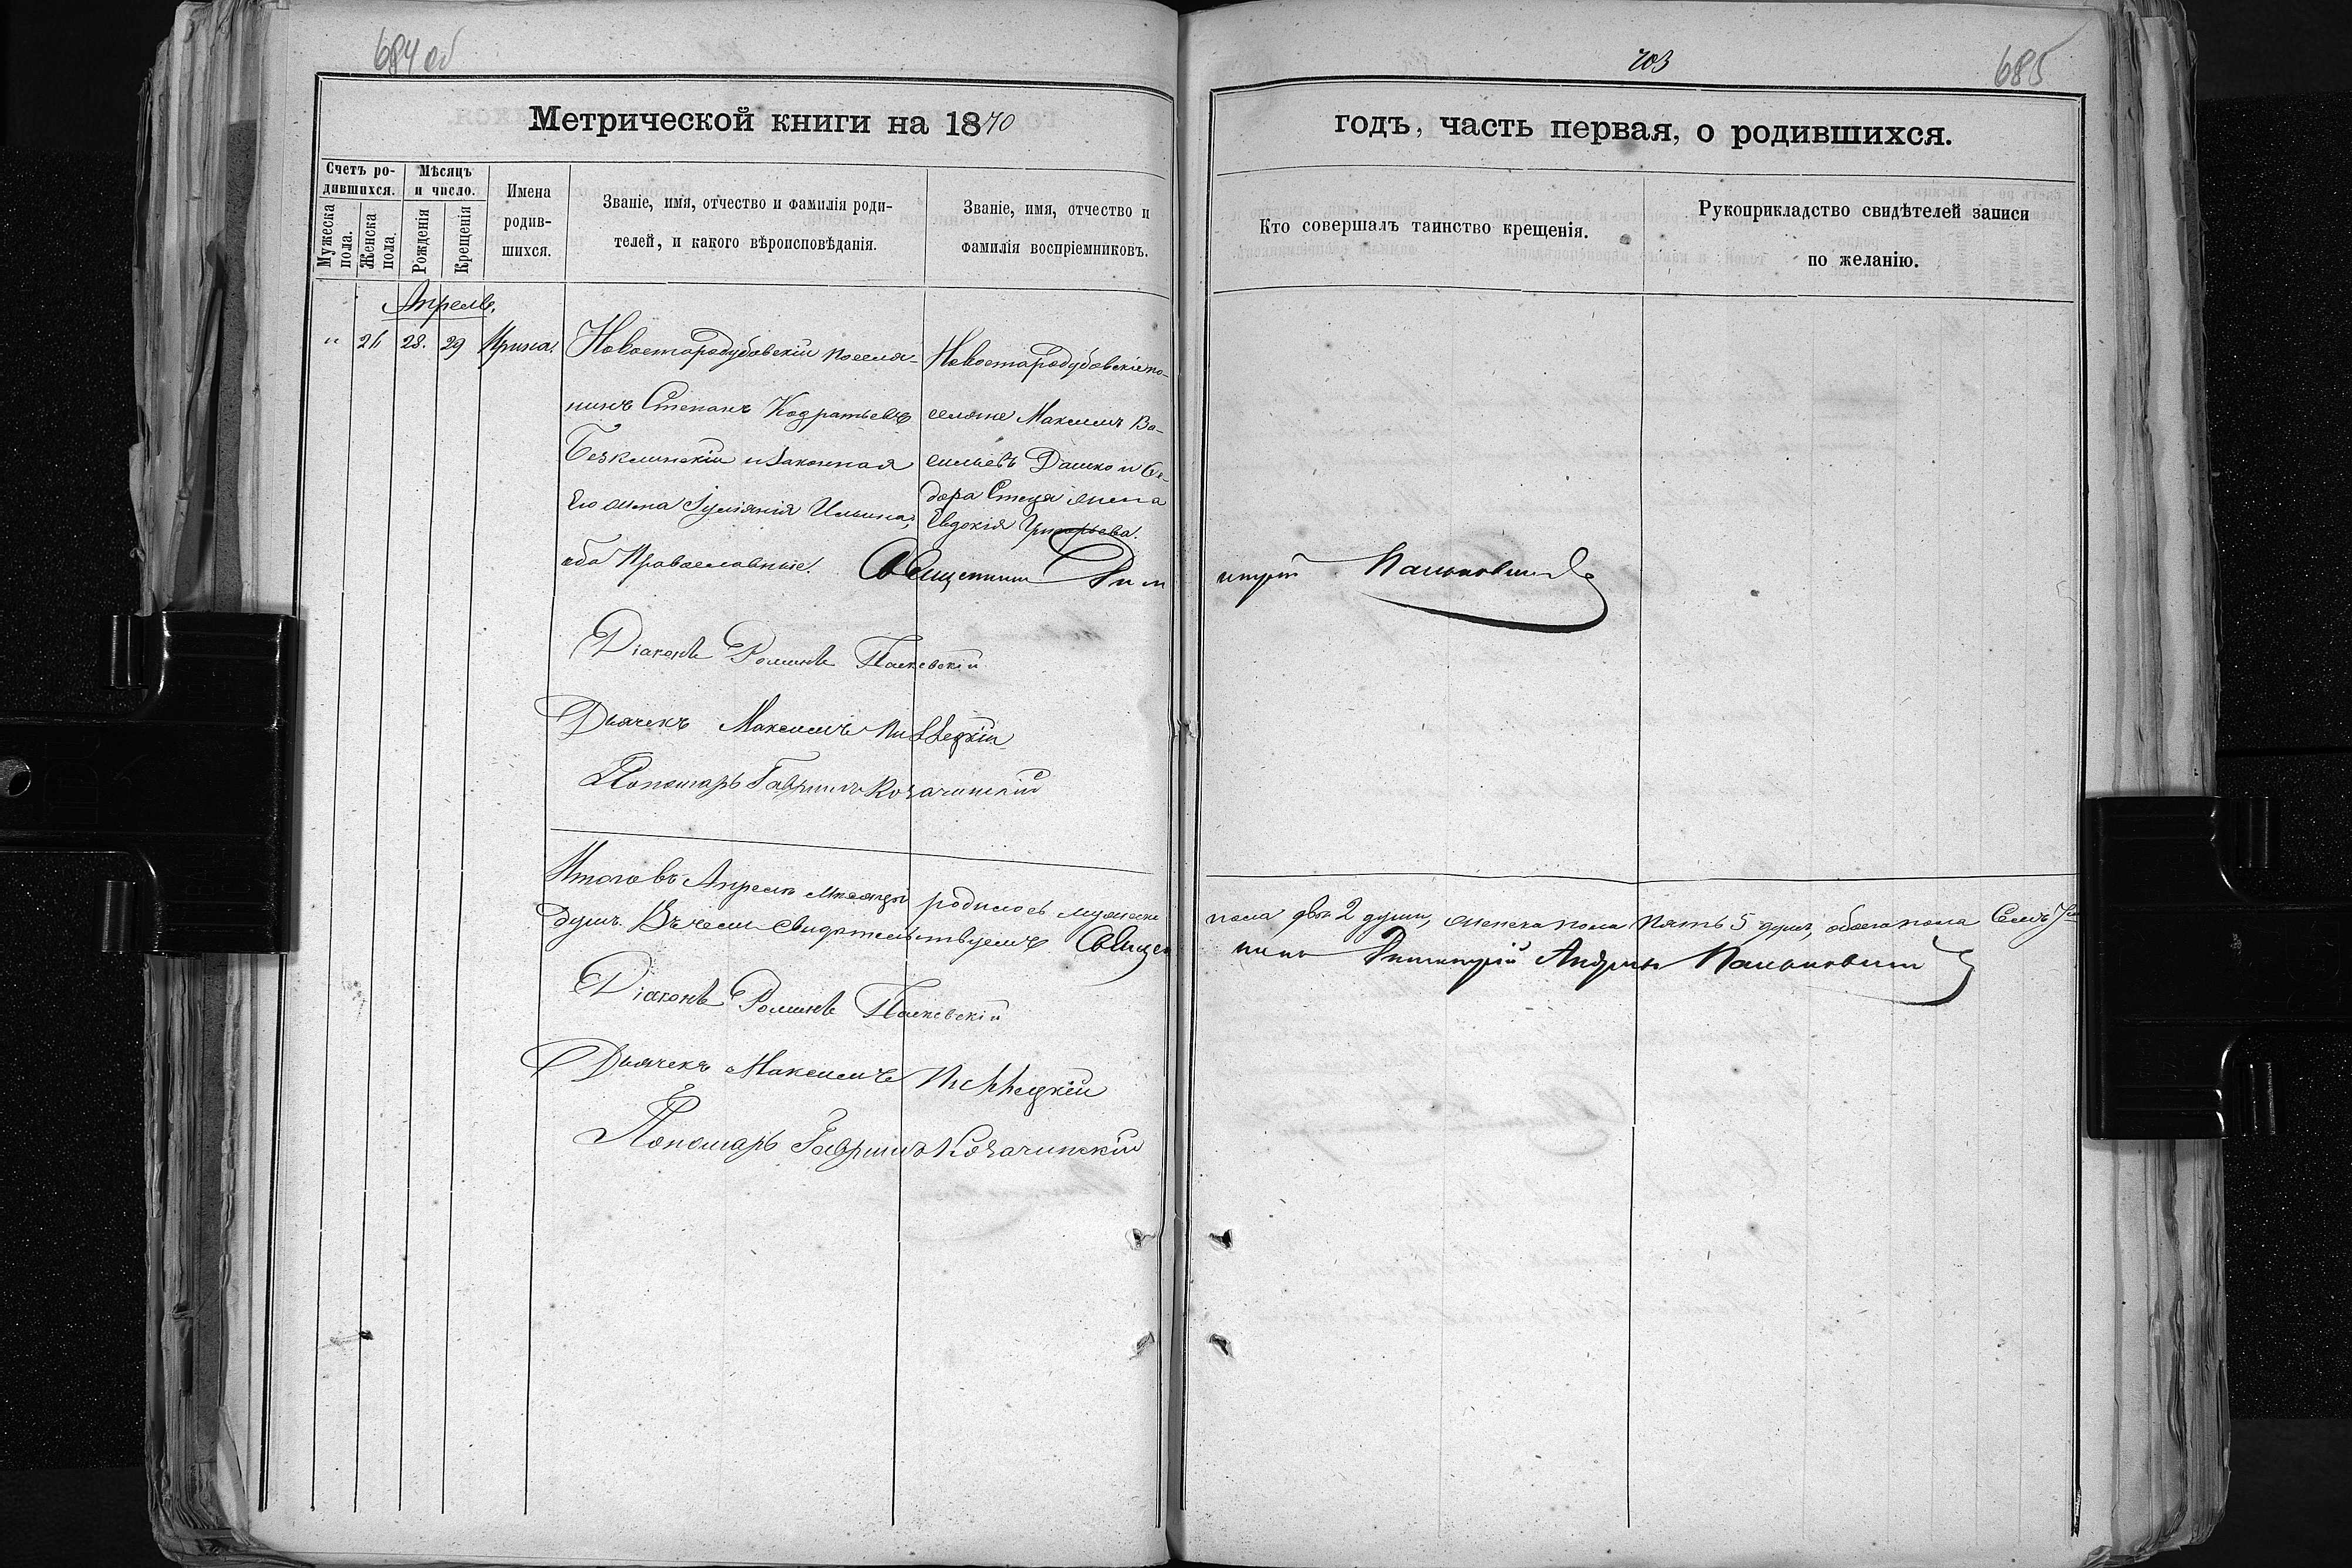 684 об
703
685
Метрической книги на 1870
годъ, часть первая, о родившихся.
Счетъ родившихся.
Мѣсяцъ и число.
Мужеска пола.
Женска пола.
Рожденія
Крещенія
Имена родившихся.
Званіе, имя, отчество и фамилія родителей, и какого вѣроисповѣданія.
Званіе, имя, отчество и фамилія воспріемниковъ.
Кто совершалъ таинство крещенія.
Рукоприкладство свидѣтелей записи по желанію.
Апрель.
" 26 28. 29 Ирина.
Новостародубовскій поселя-
нинъ Степанъ Кодратьевъ
Безклинскій и законная
Его жена Іуліянія Ильина,
оба Православные.
Новостародубовскіе по-
селяне Максимъ Ва-
сильевъ Дашко и Ѳе-
дора жена
Евдокія Григорьева.
Священникъ Димитрій
Діаконъ Романъ Паскевскій
Дьячекъ Максимъ
Пономарь Гавриилъ Козачинскій
Итого въ Апреле месяце родилось мужеска пола двѣ 2 души, женска пола пять 5 душъ, обоего пола Семь 7
душъ. Въ чемъ свидетельствуемъ Священникъ Димитрій
Діаконъ Романъ Паскевскій
Дьячекъ Максимъ
Пономарь Гавриилъ Козачинскій